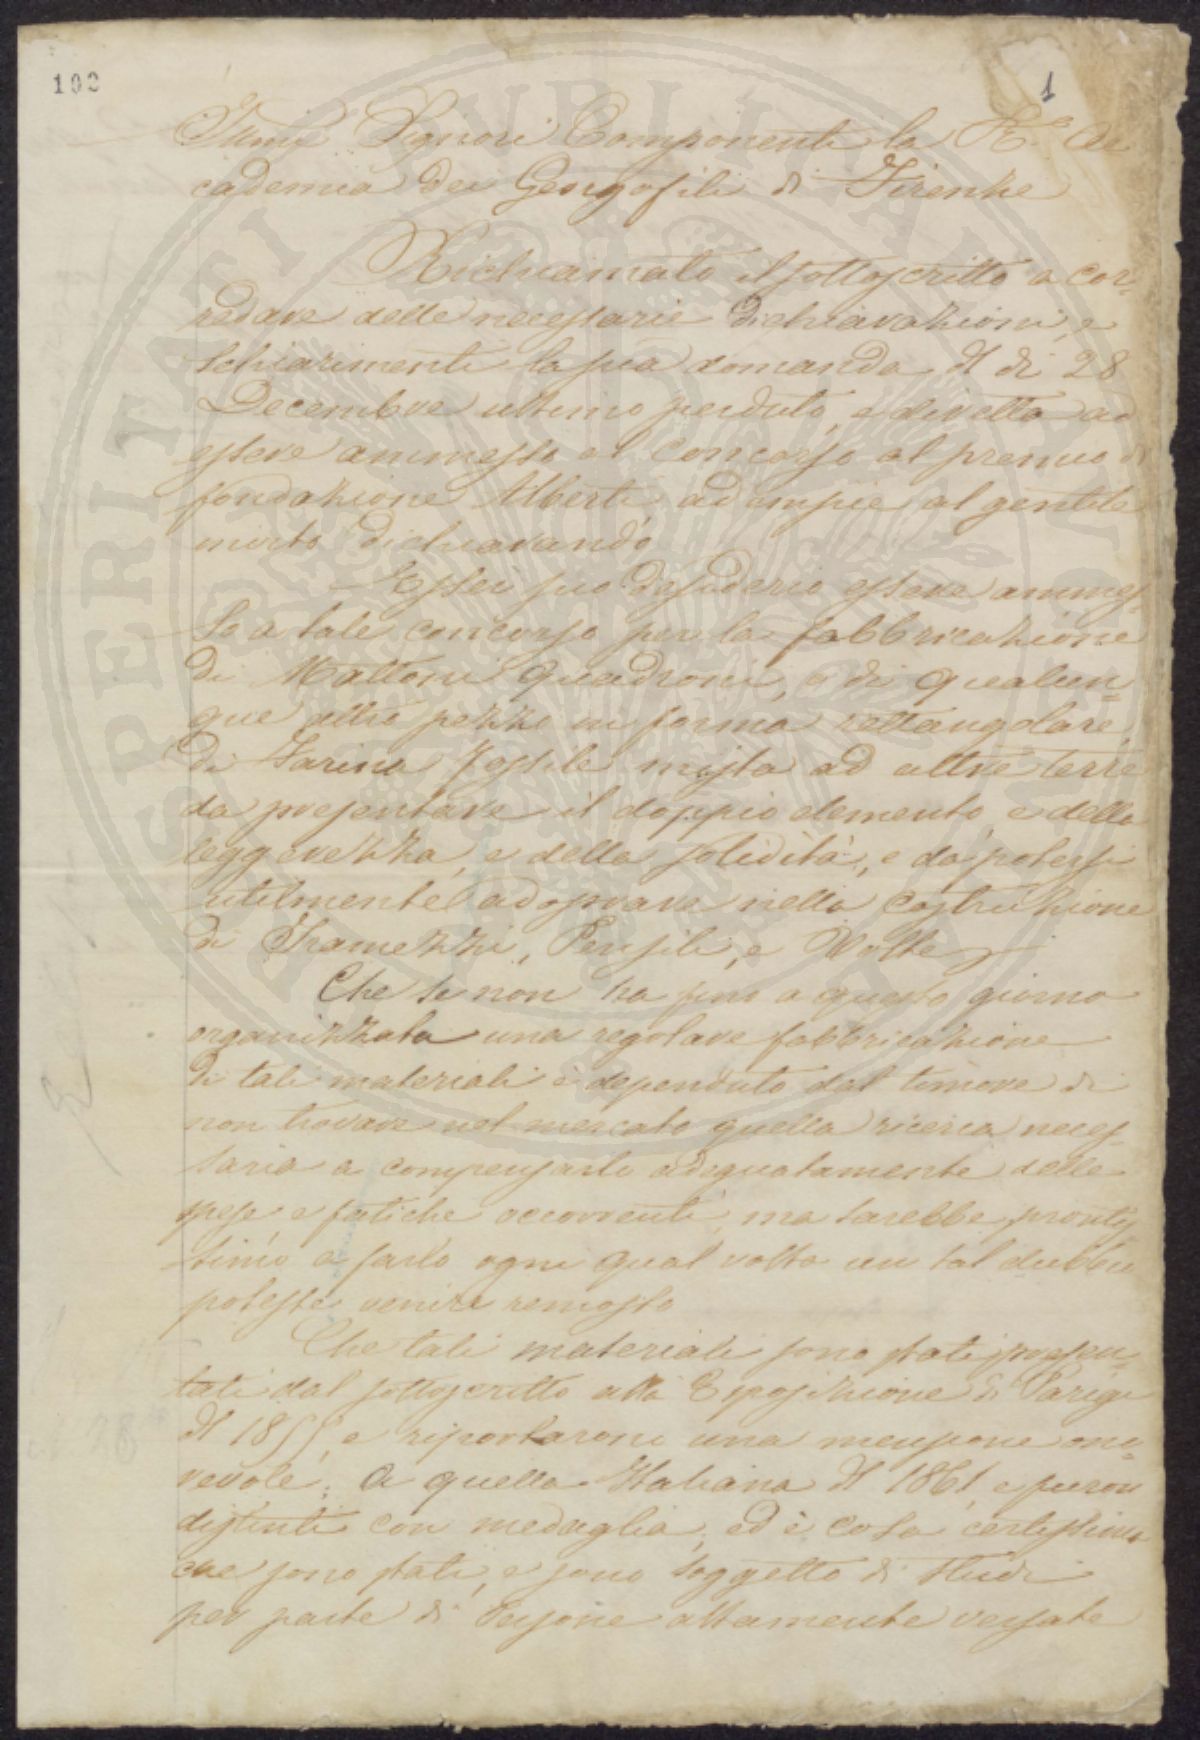 102
1
Illmi Signori Componenti la R.a Ac
cademia dei Georgofili di Firenze
Richiamato il sottoscritto a cor=
redare delle necessarie dichiarazioni, e
schiarimenti la sua domanda del dì 28
Decembre ultimo perduto, e diretta ad
essere ammesso al Concorso al premio di
fondazione Alberti, adempie al gentile
invito dichiarando
Esser suo desiderio essere ammes=
so a tale concorso per la fabbricazione
di Mattoni Quadroni, o di qualun=
que altro pezzo in forma rettangolare,
di Farina Fossile mista ad altre terre
da presentare il doppio elemento, e della
leggerezza, e della solidità, e da potersi
utilmente adoprare nella costruzione
di Tramezzi, Pensili, e Volte
Che se non ha fino a questo giorno
organizzata una regolare fabbricazione
di tali materiali è dependuto dal timore di
non trovare nel mercato quella ricerca neces
saria a compensarlo adeguatamente delle
spese e fatiche occorrenti, ma sarebbe prontis
simo a farlo ogni qual volta un tal dubbio
potesse venire remosso
Che tali materiali sono stati presen=
tati dal sottoscritto alla Esposizione di Parigi
del 1855, e riportarono una menzione ono=
revole; a quella Italiana del 1861, e furon
distinti con medaglia, ed è cosa certissima
che sono stati, e sono soggetto di studi
per parte di Persone altamente versate
PERITATI PVBLICAE